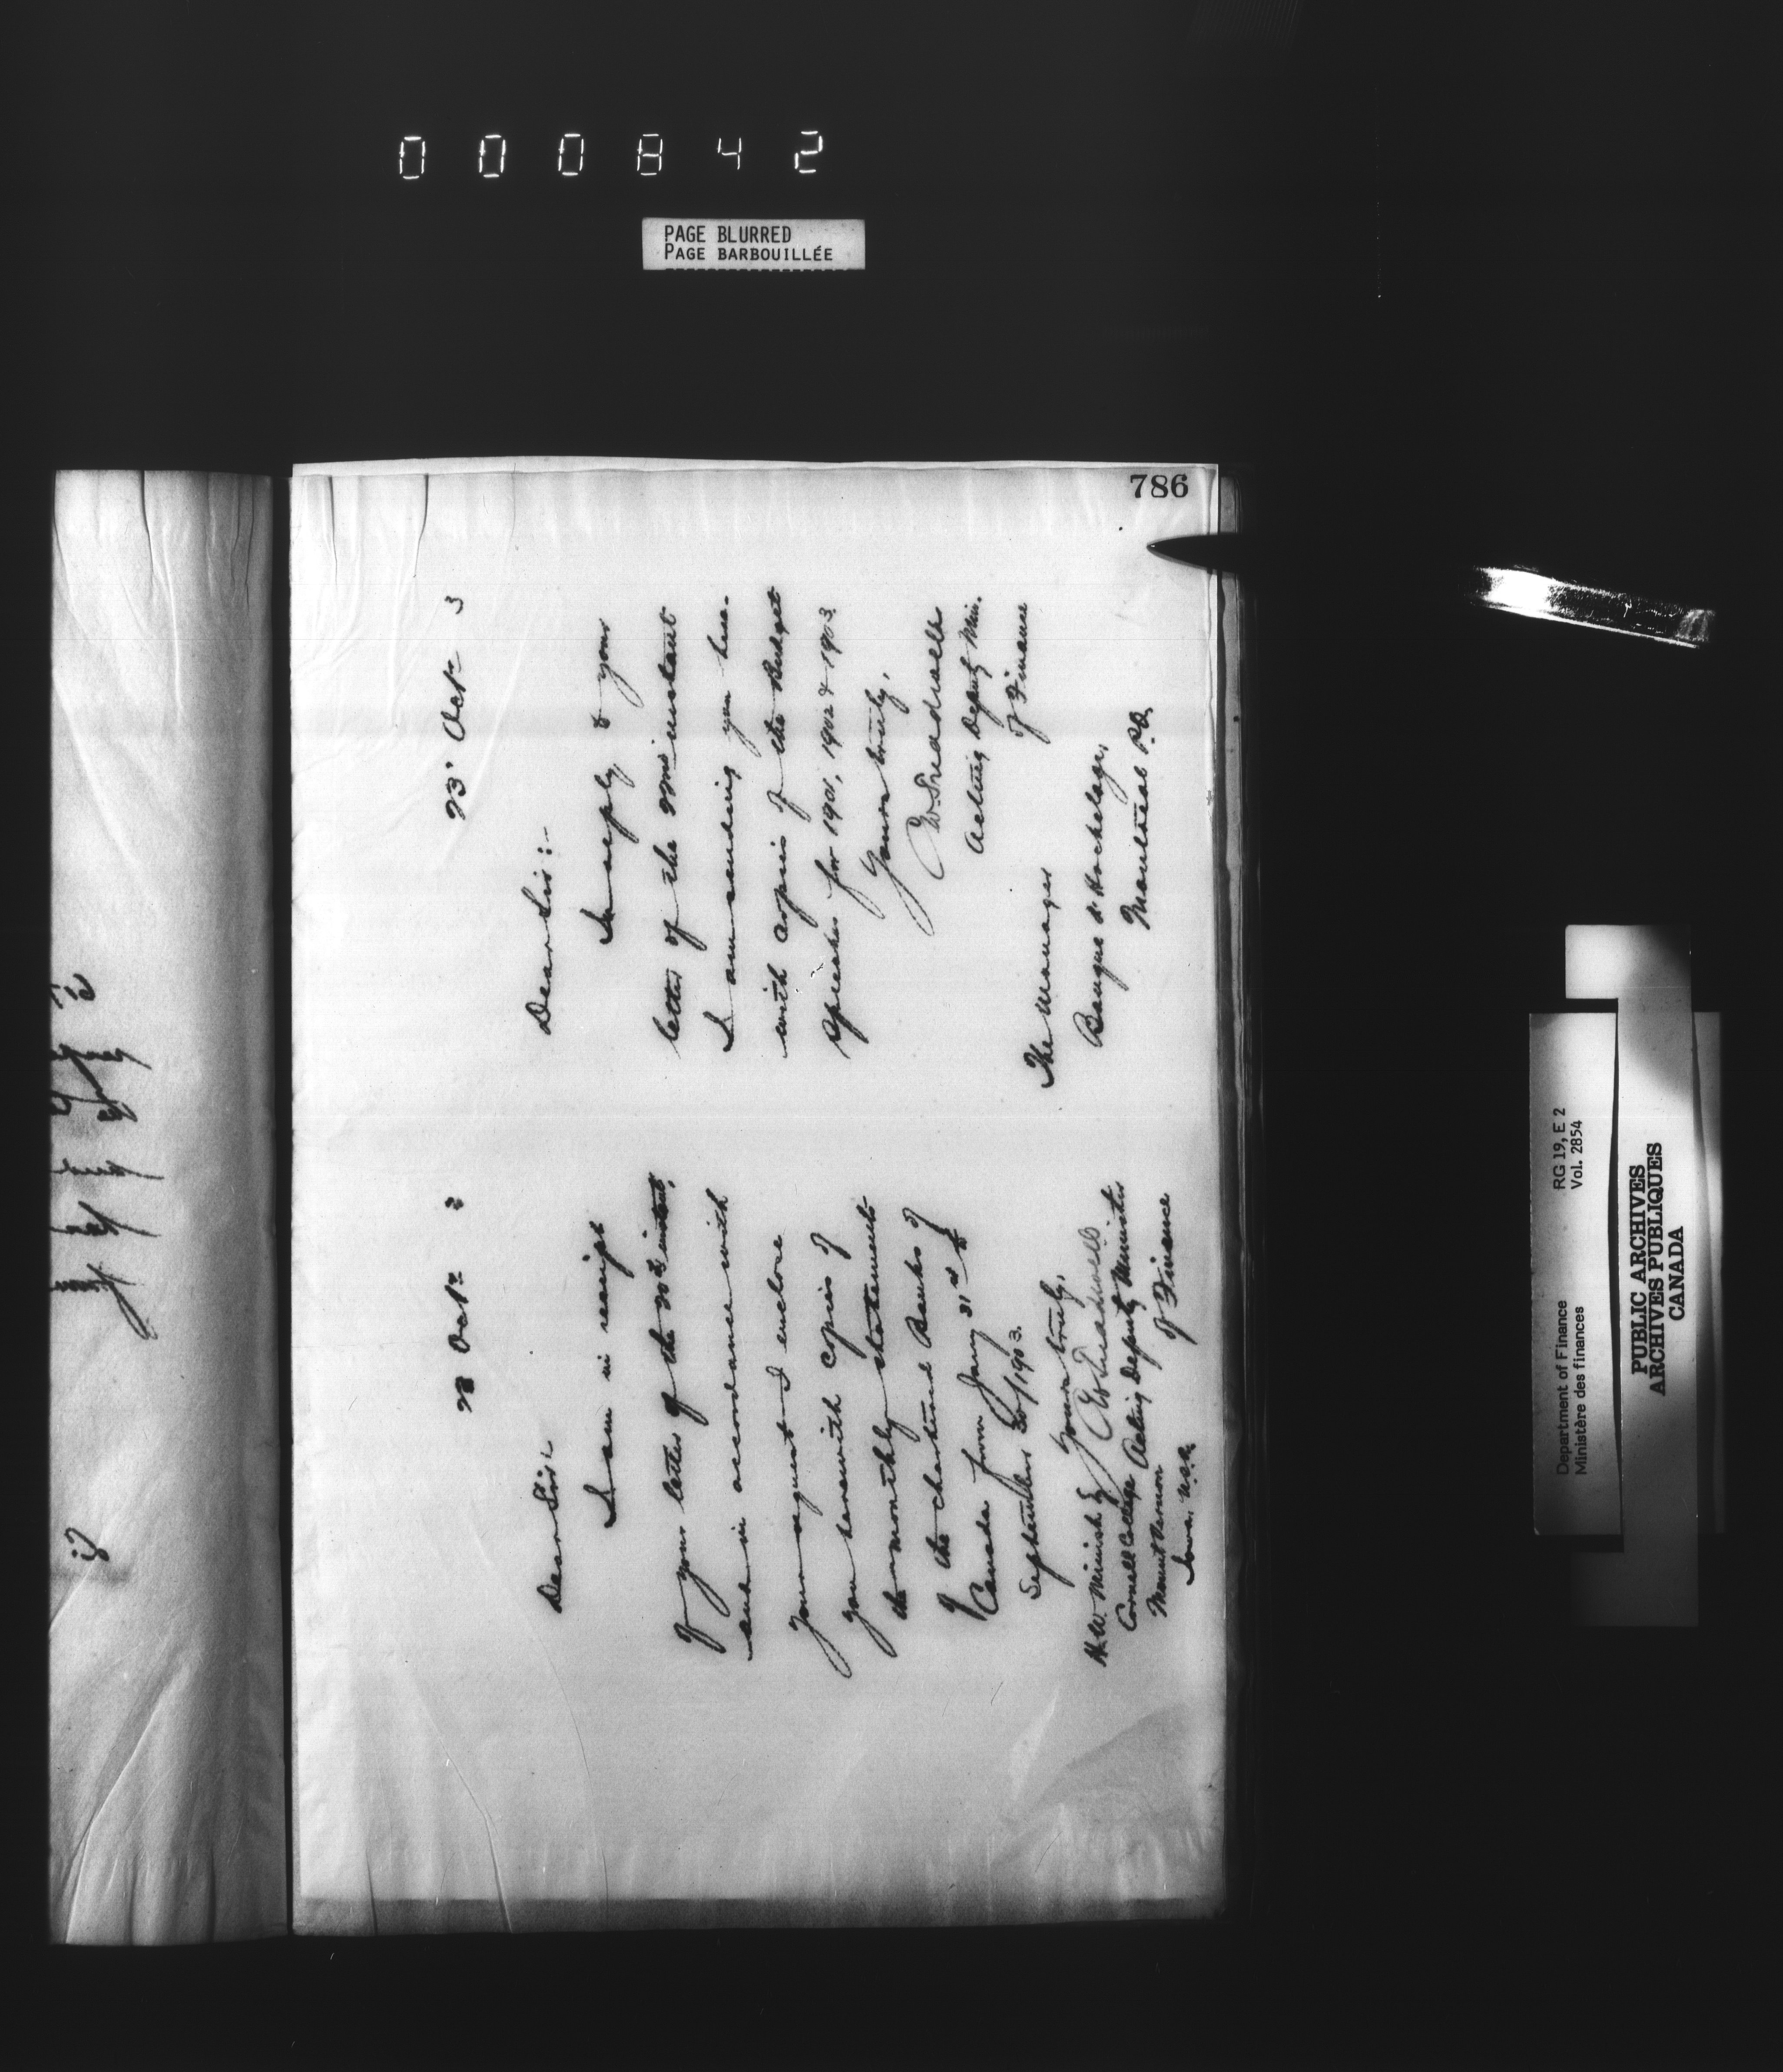 000842
PAGE BLURRED
PAGE BARBOUILLÉE
786
23 Octr 3
Dear Sir:-
I am in receipt
of your letter of the 20th instant,
and in accordance with
your request I enclose
you herewith copies of
the monthly statements
of the chartered Banks of
Canada from Jany 31st to
September 30/1903.
Yours truly,
Acting Deputy Minister
of Finance
H.W. Minish Esq
Cornell College
Mount Vernon
Iowa, U.S.A.
23 Octr 3
Dear Sir:-
In reply to your
letter of the 22nd instant
I am sending you here-
with copies of the Budget
Speeches for 1901, 1902 & 1903.
Yours truly,
Acting Deputy Min.
of Finance
The Manager
Banque d'Hochelaga,
Montreal P.Q.
Department of Finance RG 19, E 2
Ministère des finances Vol. 2854
PUBLIC ARCHIVES
ARCHIVES PUBLIQUES
CANADA